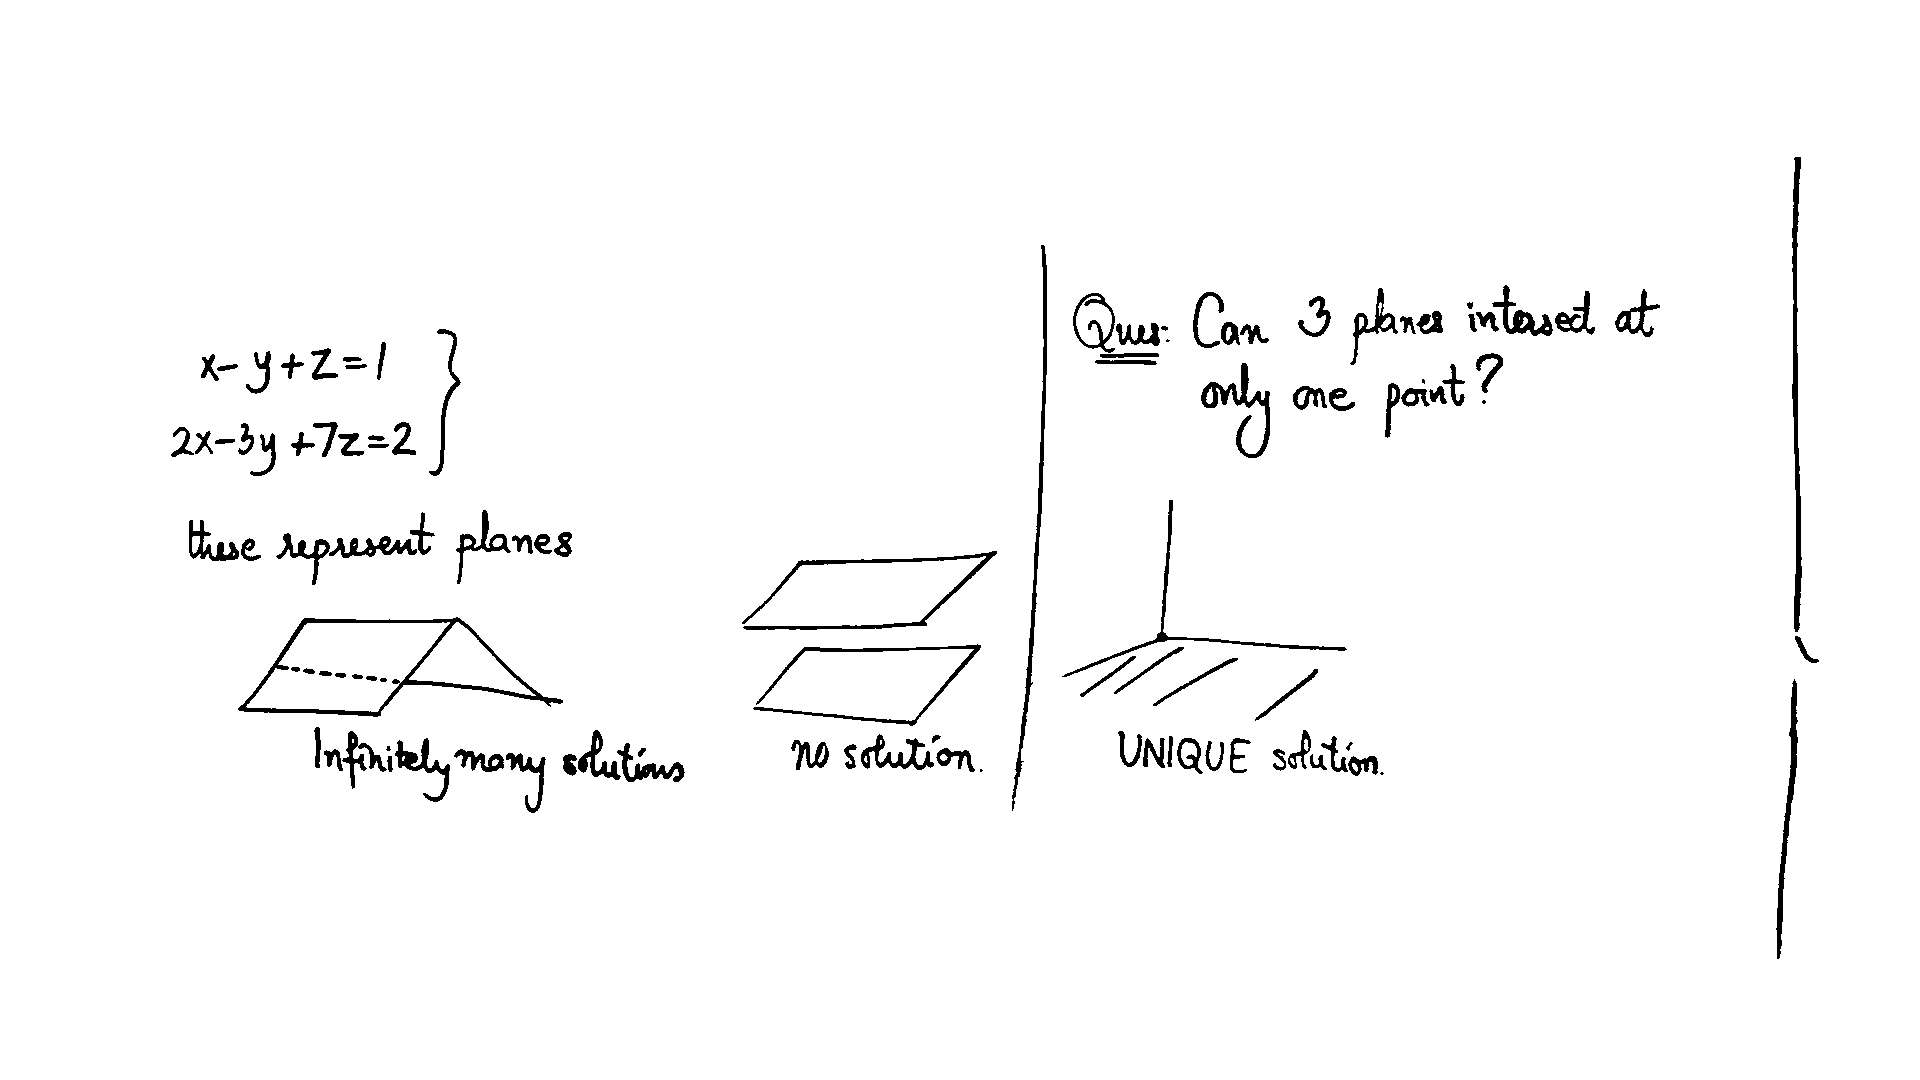 x-y+z=1
2x-3y+7z=2
these represent planes
Infinitely many solutions
no solution.
Ques: Can 3 planes intersect at
only one point?
UNIQUE solution.